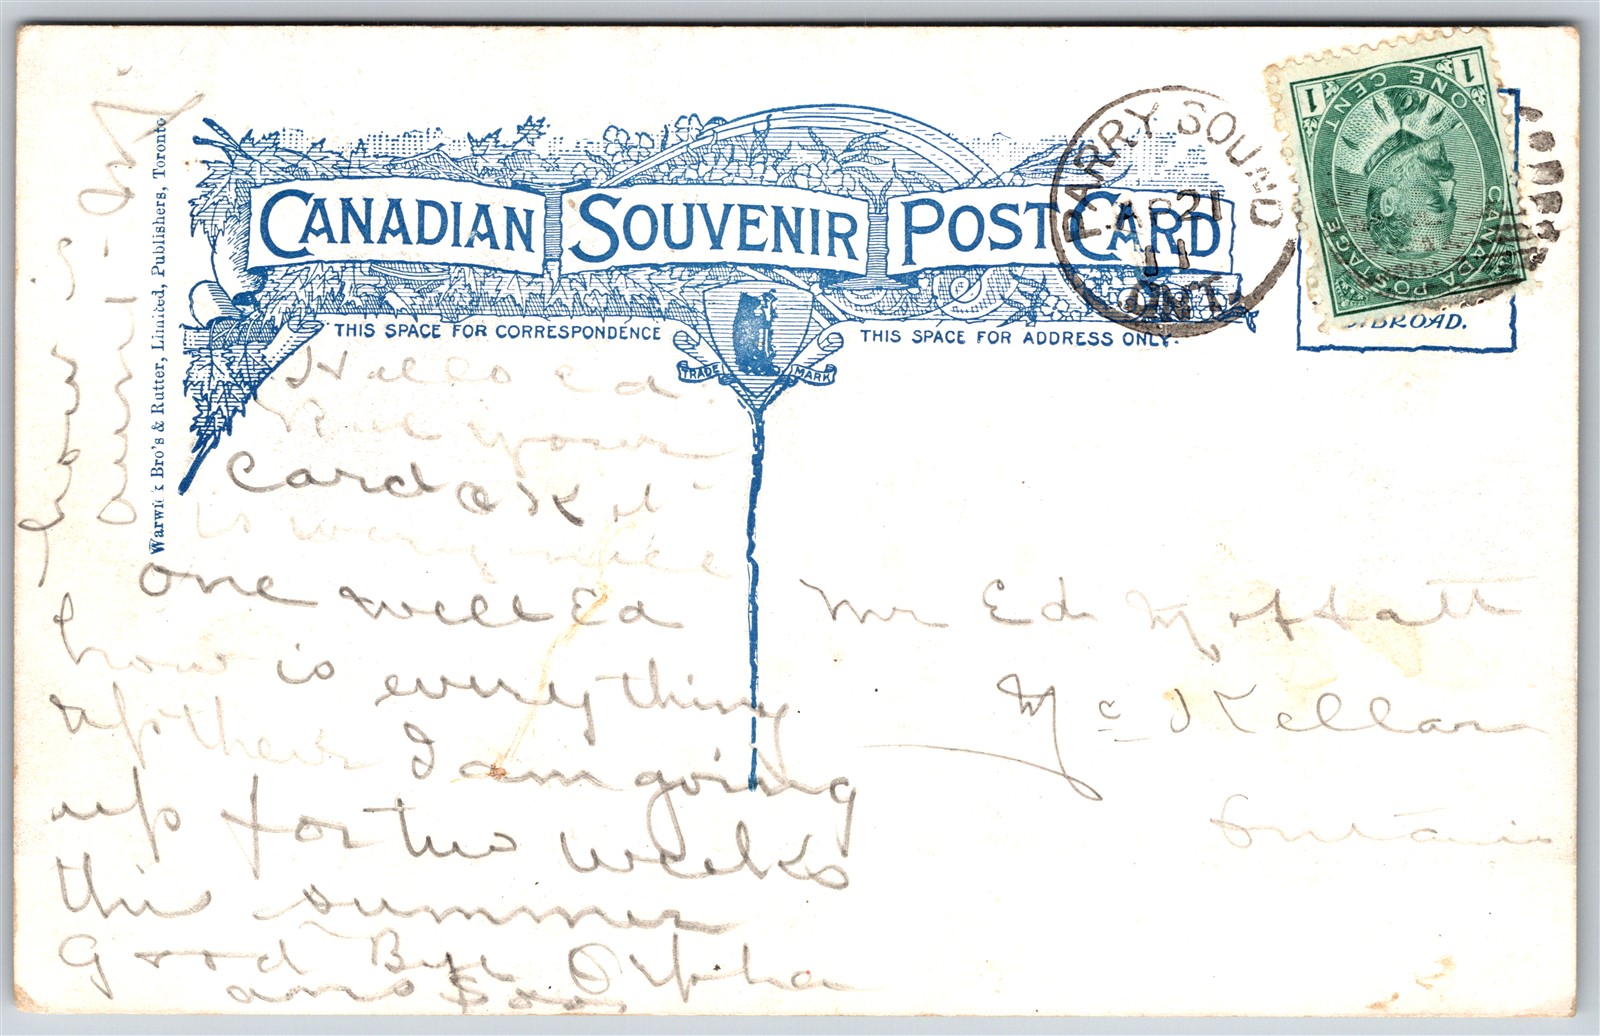 CANADIAN SOUVENIR POST CARD
THIS SPACE FOR CORRESPONDENCE
THIS SPACE FOR ADDRESS ONLY.
TRADE MARK
Warwick Bro's & Rutter, Limited, Publishers, Toronto
PARRY SOUND
AP 21
11
ONT.
CANADA POSTAGE
ONE CENT
1 1
ABROAD.
Hello Ed
Rec your
card O K it
is very nice
one well Ed
how is everything
up their I am going
up for two weeks
this summer
Good Bye Orpha
ans Soo.
from
aunt
Mr Ed Moffatt
Mc Kellar
Ontario